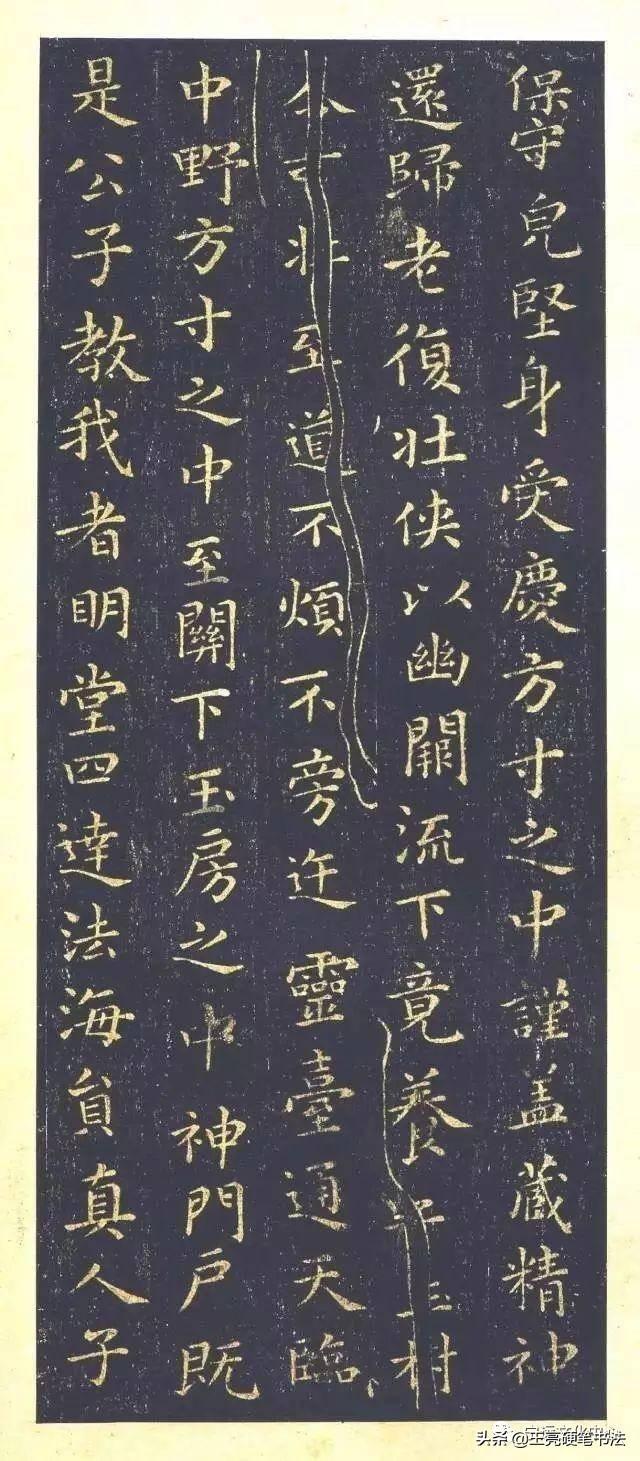 保守皃堅身受慶方寸之中謹盖藏精神
還歸老復壯俠以幽闕流下竟養子玉村
令可壯至道不煩不旁迕靈臺通天臨
中野方寸之中至關下玉房之中神門戶既
是公子教我者明堂四達法海員真人子
头条 @王亮硬笔书法